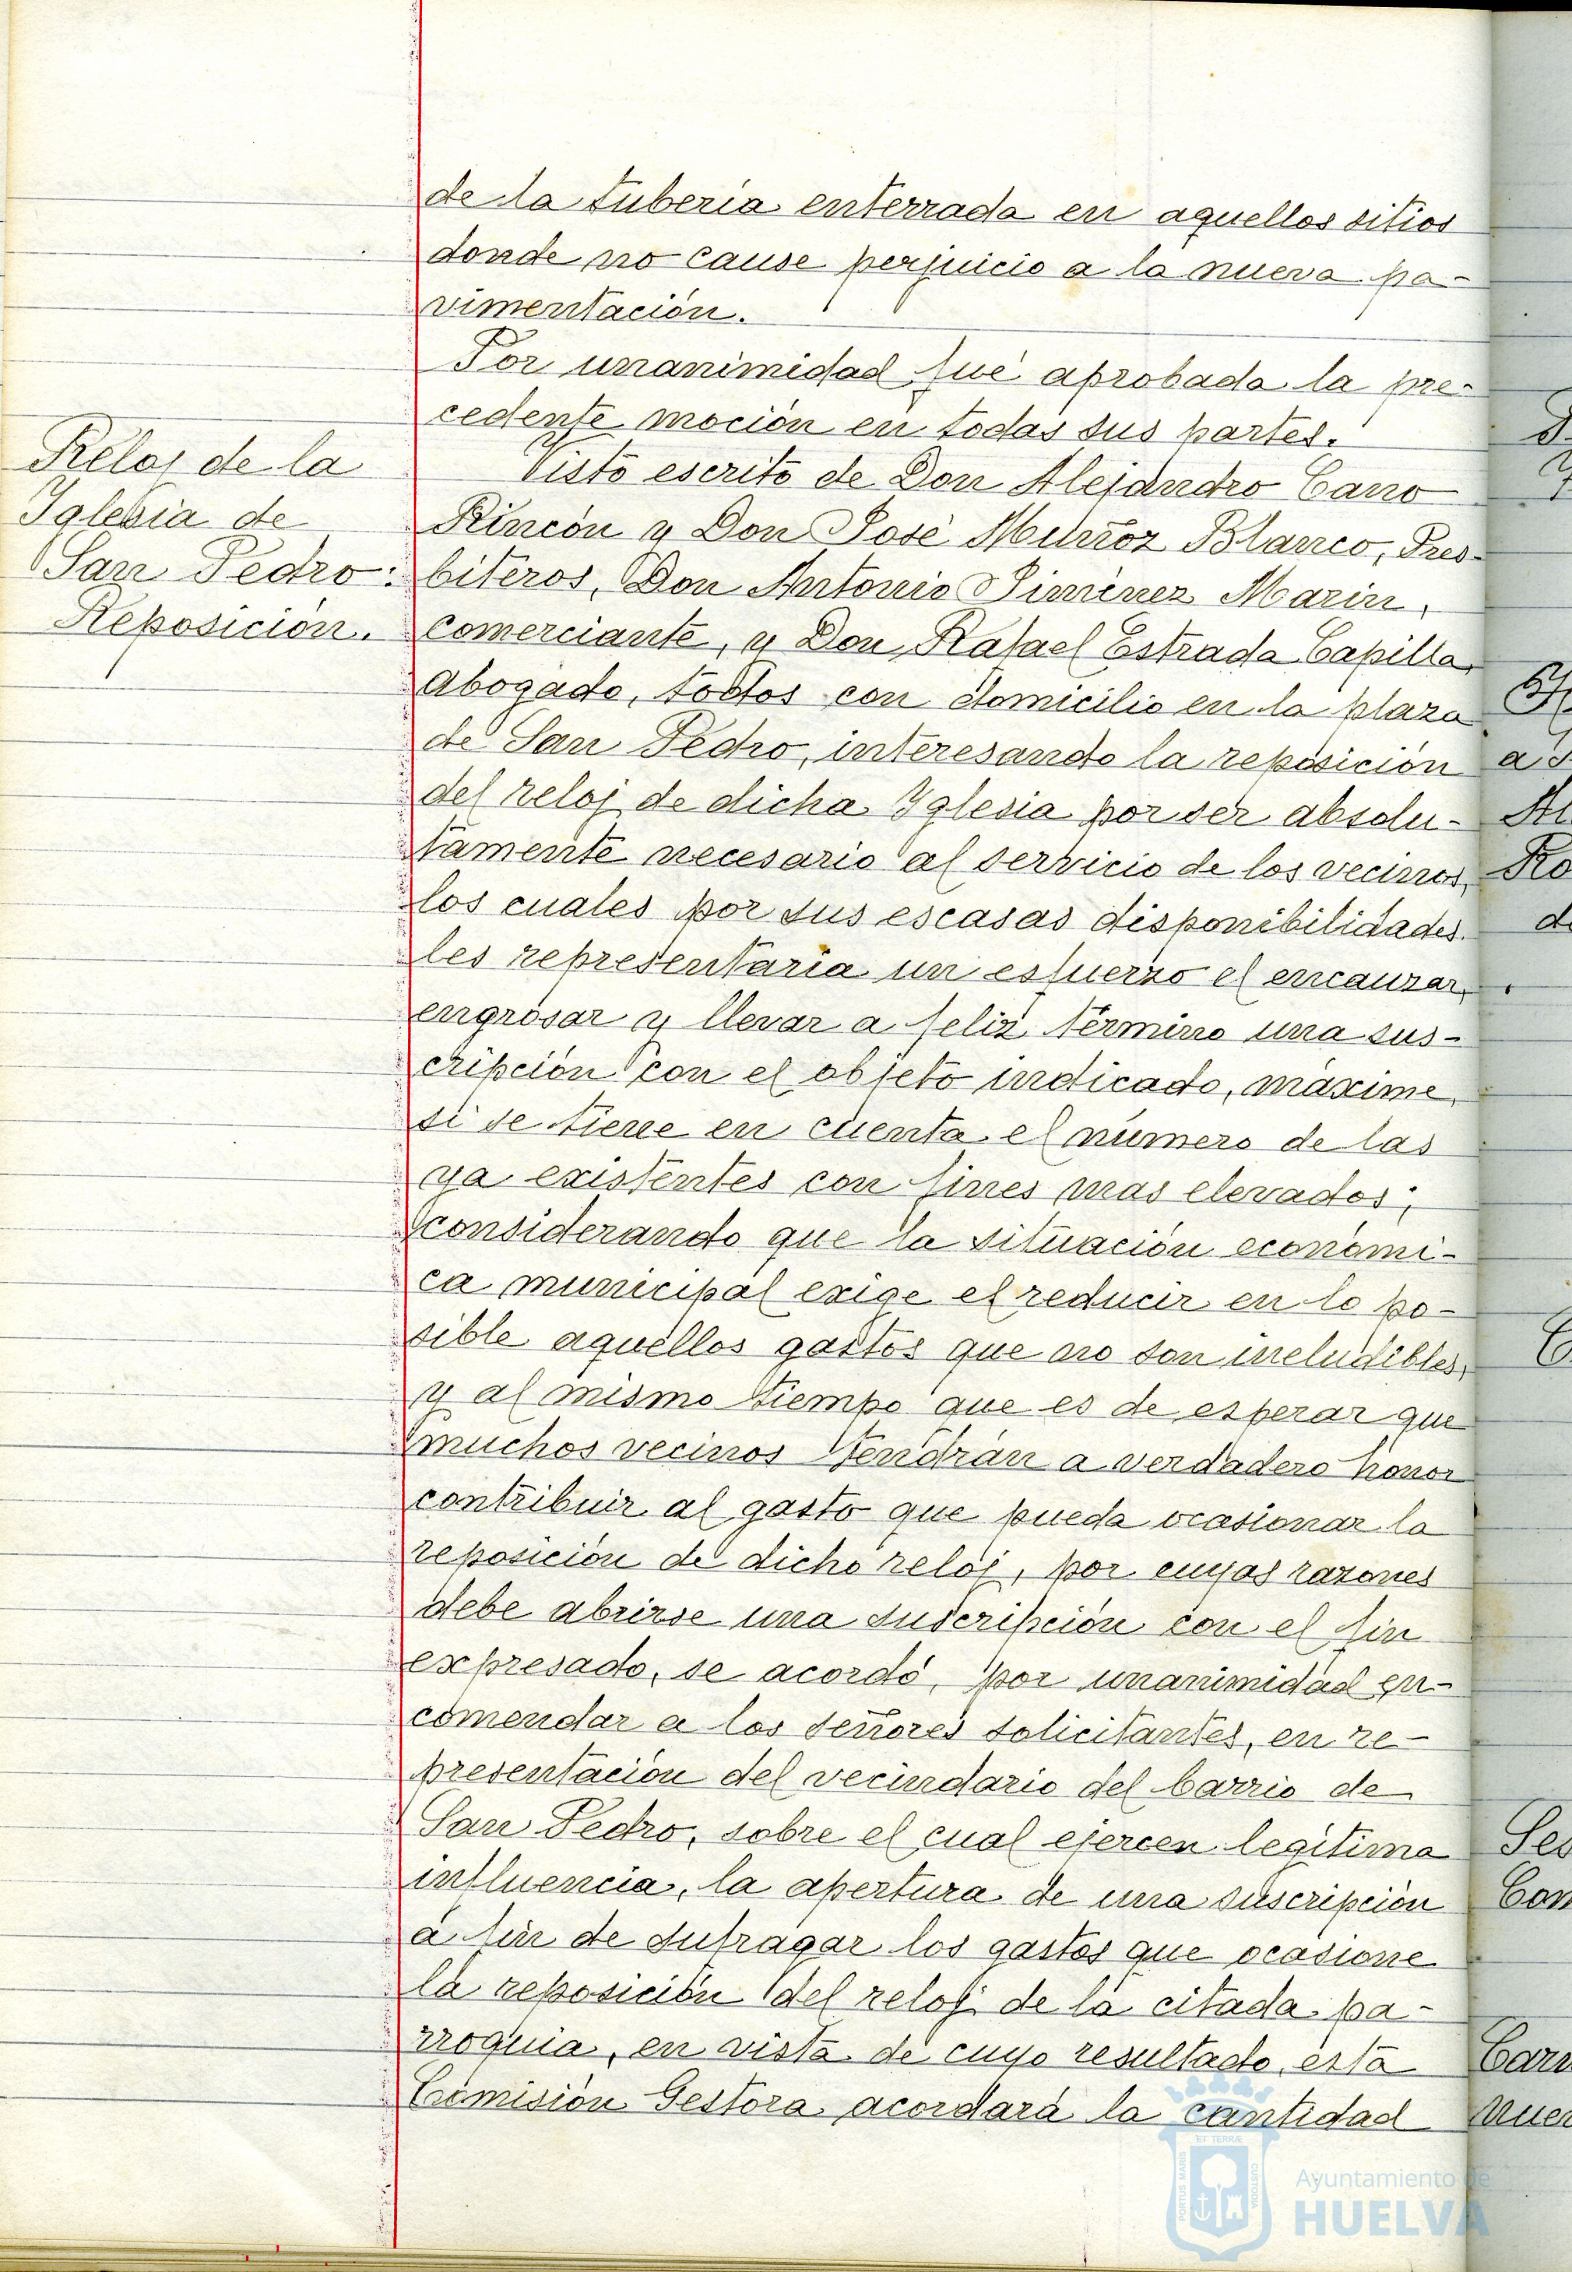 de la tuberia enterrada en aquellos sitios
donde no cause perjuicio a la nueva pa-
vimentación.
Por unanimidad fué aprobada la pre-
cedente moción en todas sus partes.
Reloj de la
Iglesia de
San Pedro:
Reposición.
Visto escrito de Don Alejandro Cano
Rincón y Don José Muñoz Blanco, Pres-
biteros, Don Antonio Jiménez Marin,
comerciante, y Don Rafael Estrada Capilla,
abogado, todos con domicilio en la plaza
de San Pedro, interesando la reposición
del reloj de dicha Iglesia por ser absolu-
tamente necesario al servicio de los vecinos,
los cuales por sus escasas disponibilidades
les representaria un esfuerzo el encauzar,
engrosar y llevar a feliz término una sus-
cripción con el objeto indicado, máxime
si se tiene en cuenta el número de las
ya existentes con fines mas elevados;
considerando que la situación económi-
ca municipal exige el reducir en lo po-
sible aquellos gastos que no son ineludibles,
y al mismo tiempo que es de esperar que
muchos vecinos tendrán a verdadero honor
contribuir al gasto que pueda ocasionar la
reposición de dicho reloj, por cuyas razones
debe abrirse una suscripción con el fin
expresado, se acordó, por unanimidad en-
comendar a los señores solicitantes, en re-
presentación del vecindario del barrio de
San Pedro, sobre el cual ejercen legitima
influencia, la apertura de una suscripción
a fin de sufragar los gastos que ocasione
la reposición del reloj de la citada pa-
rroquia, en vista de cuyo resultado, esta
Comisión Gestora acordará la cantidad
PORTUS MARIS
ET TERRÆ
CUSTODIA
Ayuntamiento de
HUELVA